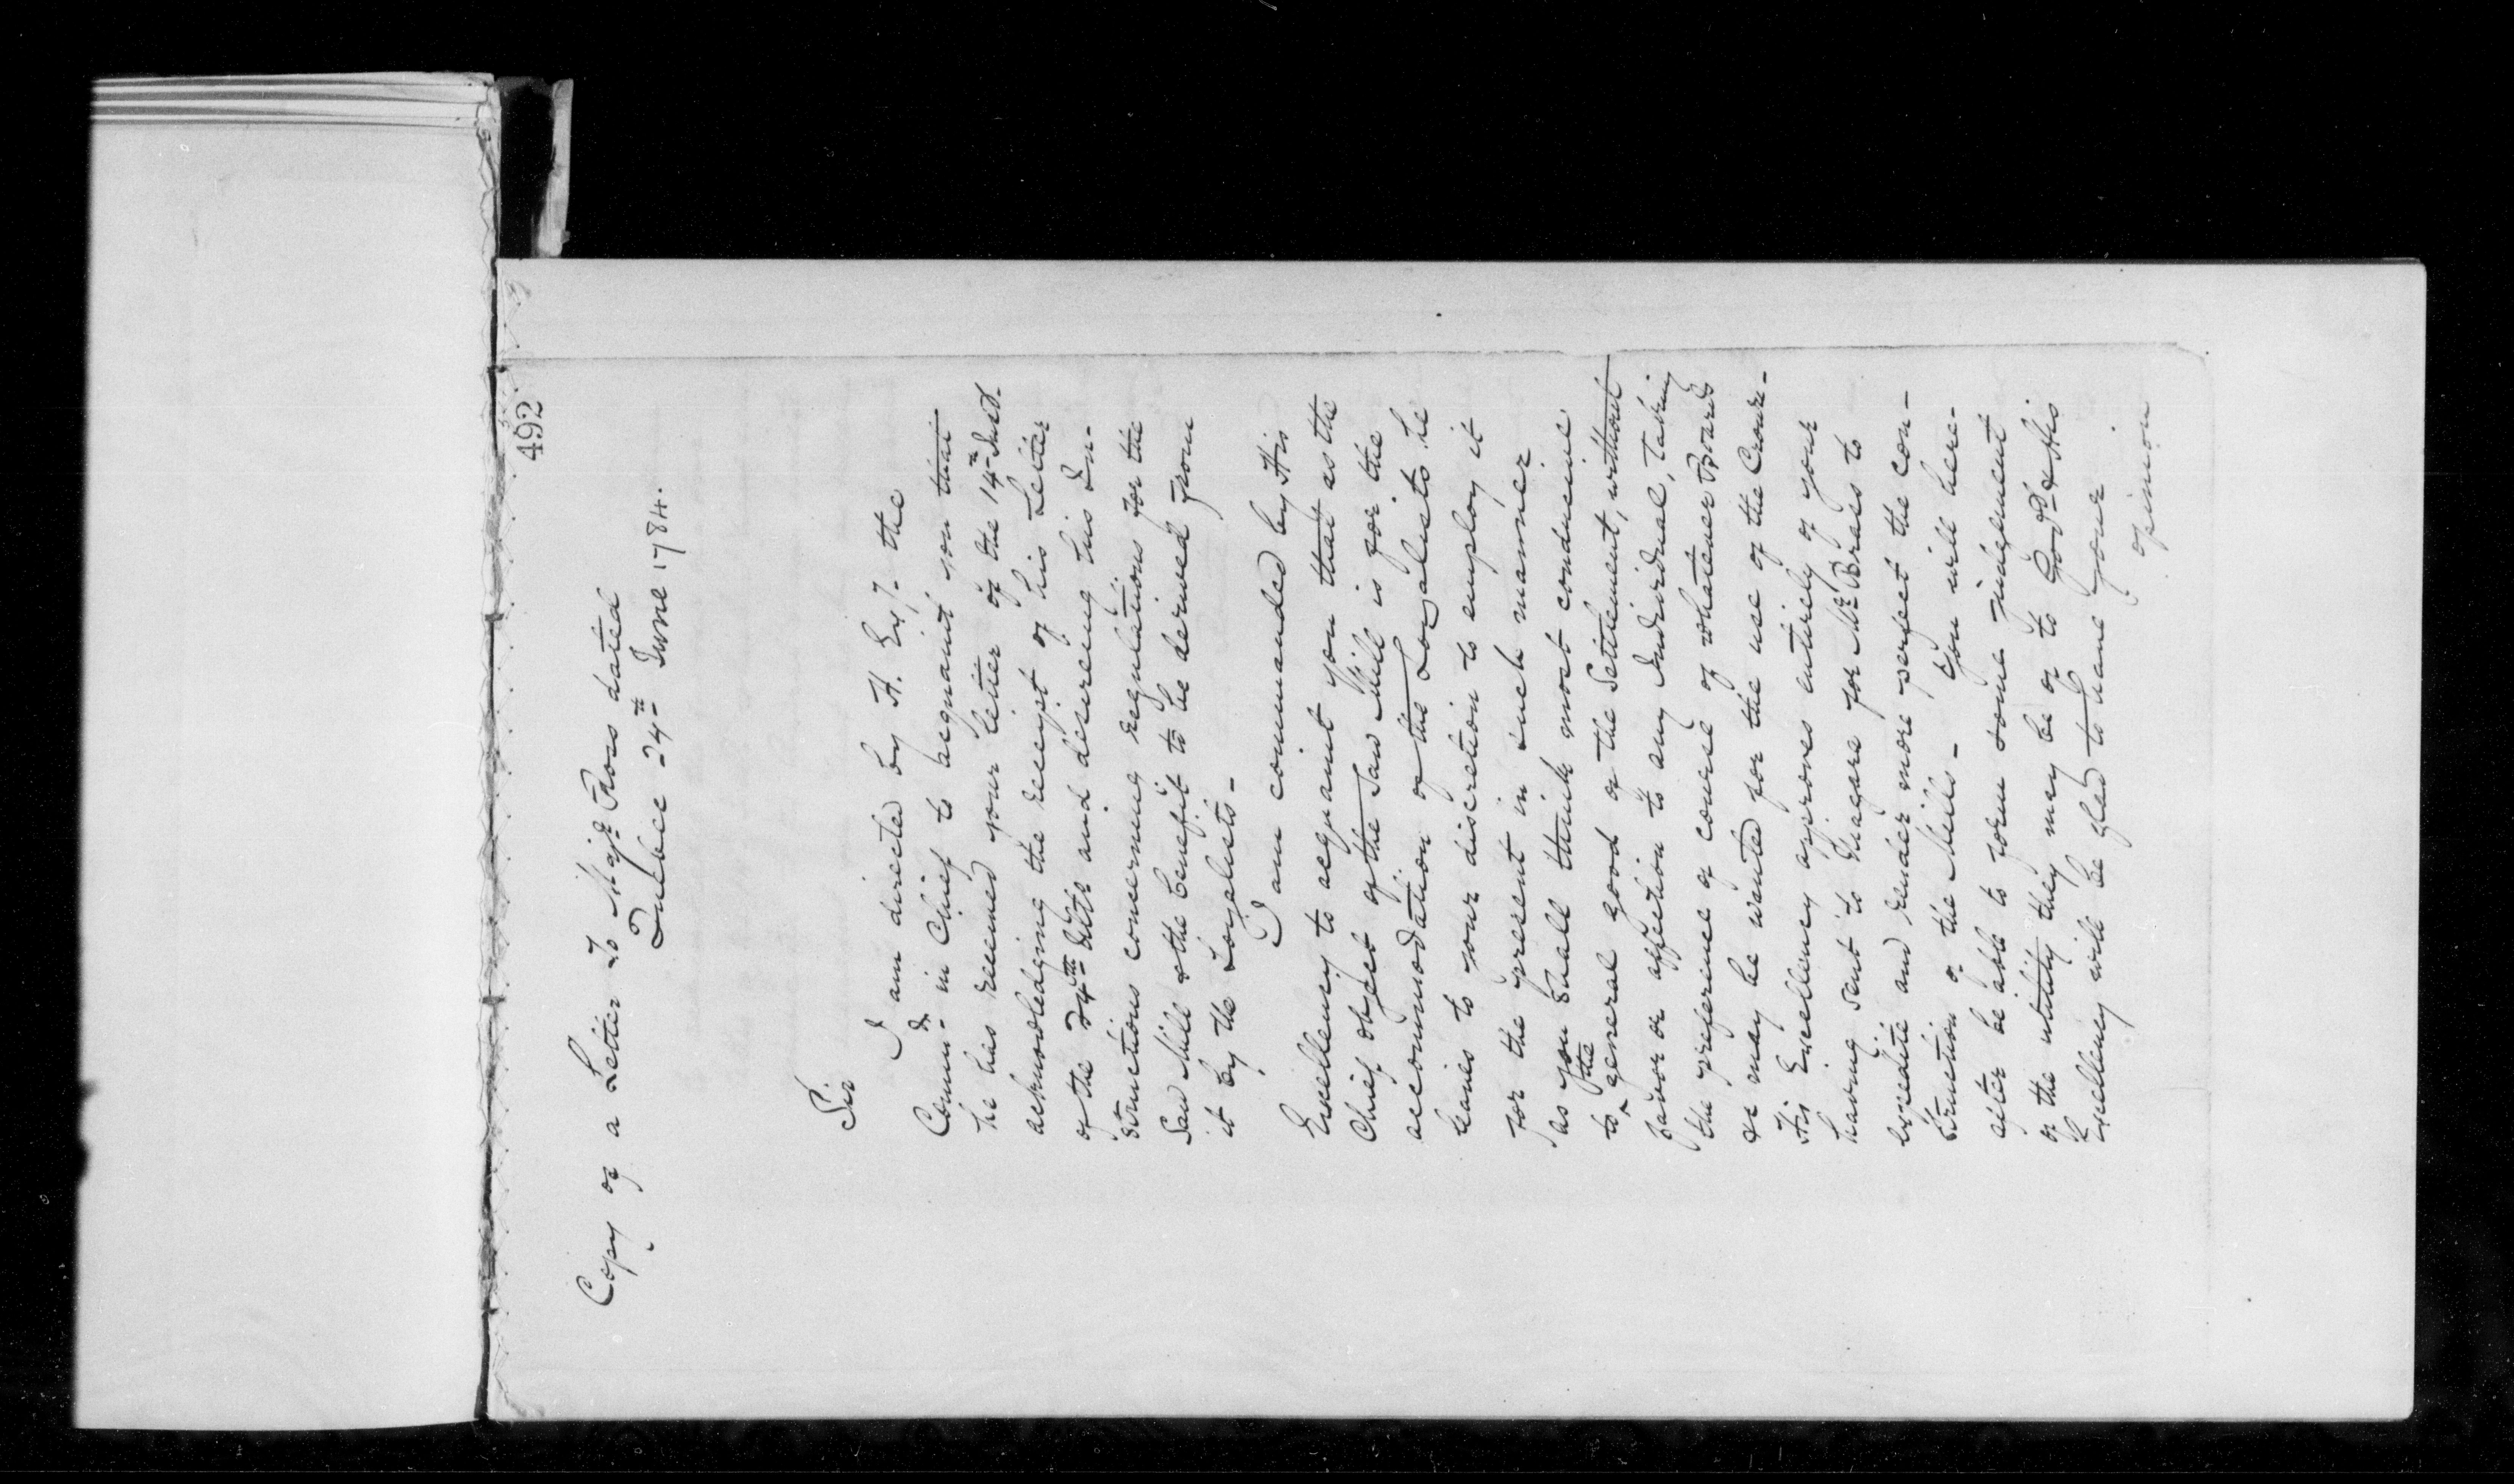 492
Copy of a Letter To Majr. Ross dated
Quebec 24th June 1784.
Sir
I am directed by H. Exy. the
Commr. in Chief to acquaint you that
he has received your letter of the 14th Inst.
acknowledging the receipt of his Letter
of the 24th Ulto and desireing his In-
structions concerning regulations for the
Saw Mill & the benefit to be derived from
it by the Loyalists -
I am commanded by His
Excellency to acquaint you that as the
Chief object of the Saw Mill is for the
accommodation of the Loyalists he
leaves to your discretion to employ it
for the present in such manner
as you shall think most conducive
to the general good of the Settlement, without
favor or affection to any Individual, taking
the preference of course of whatever Boards
&c may be wanted for the use of the Crown -
His Excellency approves entirely of your
having sent to Niagara for Mr. Brass to
expedite and render more perfect the con-
struction of the Mills - You will here-
after be able to form some judgement
of the utility they may be of to Govt & His
Excellency will be glad to have your
opinion